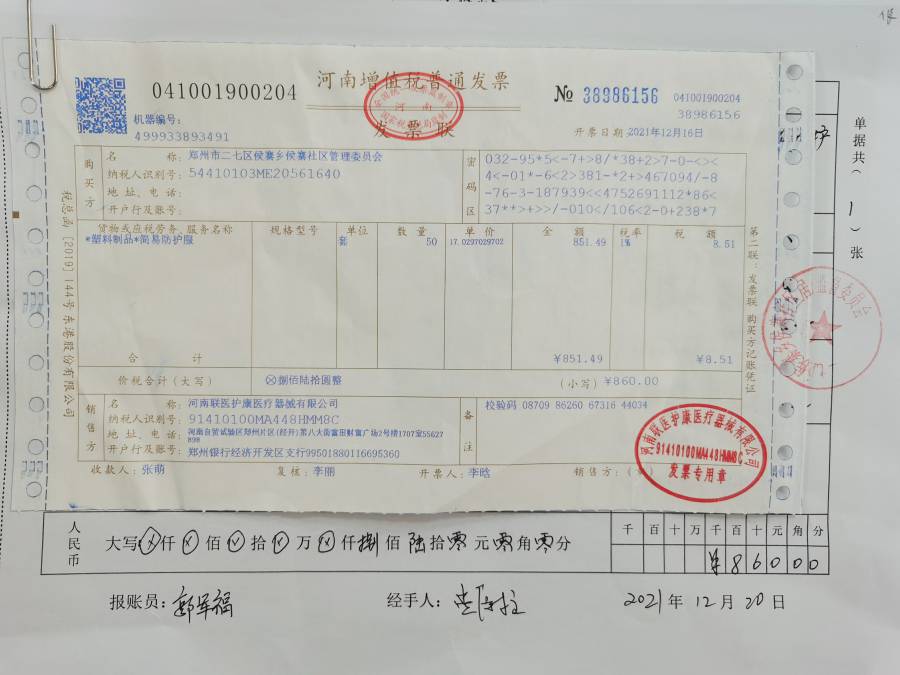 041001900204
河南增值税普通发票
发票联
№ 38986156
041001900204
38986156
机器编号:
499933893491
开票日期:2021年12月16日
购买方
名称:郑州市二七区侯寨乡侯寨社区管理委员会
纳税人识别号:54410103ME20561640
地址、电话:
开户行及账号:
密码区
032-95*5<-7+>8/*38+2>7-0-<><
4<-01*-6<2>381-*2+>467094/-8
-76-3-187939<<4752691112*86<
37**>+>>/-010</106<2-0+238*7
货物或应税劳务、服务名称 规格型号 单位 数量 单价 金额 税率 税额
*塑料制品*简易防护服 套 50 17.0297029702 851.49 1% 8.51
合计 ¥851.49 ¥8.51
价税合计(大写) ⊗捌佰陆拾圆整 (小写)¥860.00
销售方
名称:河南联医护康医疗器械有限公司
纳税人识别号:91410100MA448HMM8C
地址、电话:河南自贸试验区郑州片区(经开)第八大街富田财富广场2号楼1707室55627
898
开户行及账号:郑州银行经济开发区支行99501880116695360
备注
校验码 08709 86260 67316 44034
收款人:张萌 复核:李丽 开票人:李晗 销售方:(章)
河南联医护康医疗器械有限公司
91410100MA448HMM8C
发票专用章
税总函[2019]144号东港股份有限公司
第二联:发票联 购买方记账凭证
单据共(1)张
人民币
大写ⓧ仟ⓧ佰ⓧ拾ⓧ万ⓧ仟捌佰陆拾零元零角零分
千百十万千百十元角分
¥86000
报账员:郭军福 经手人:
2021年12月20日